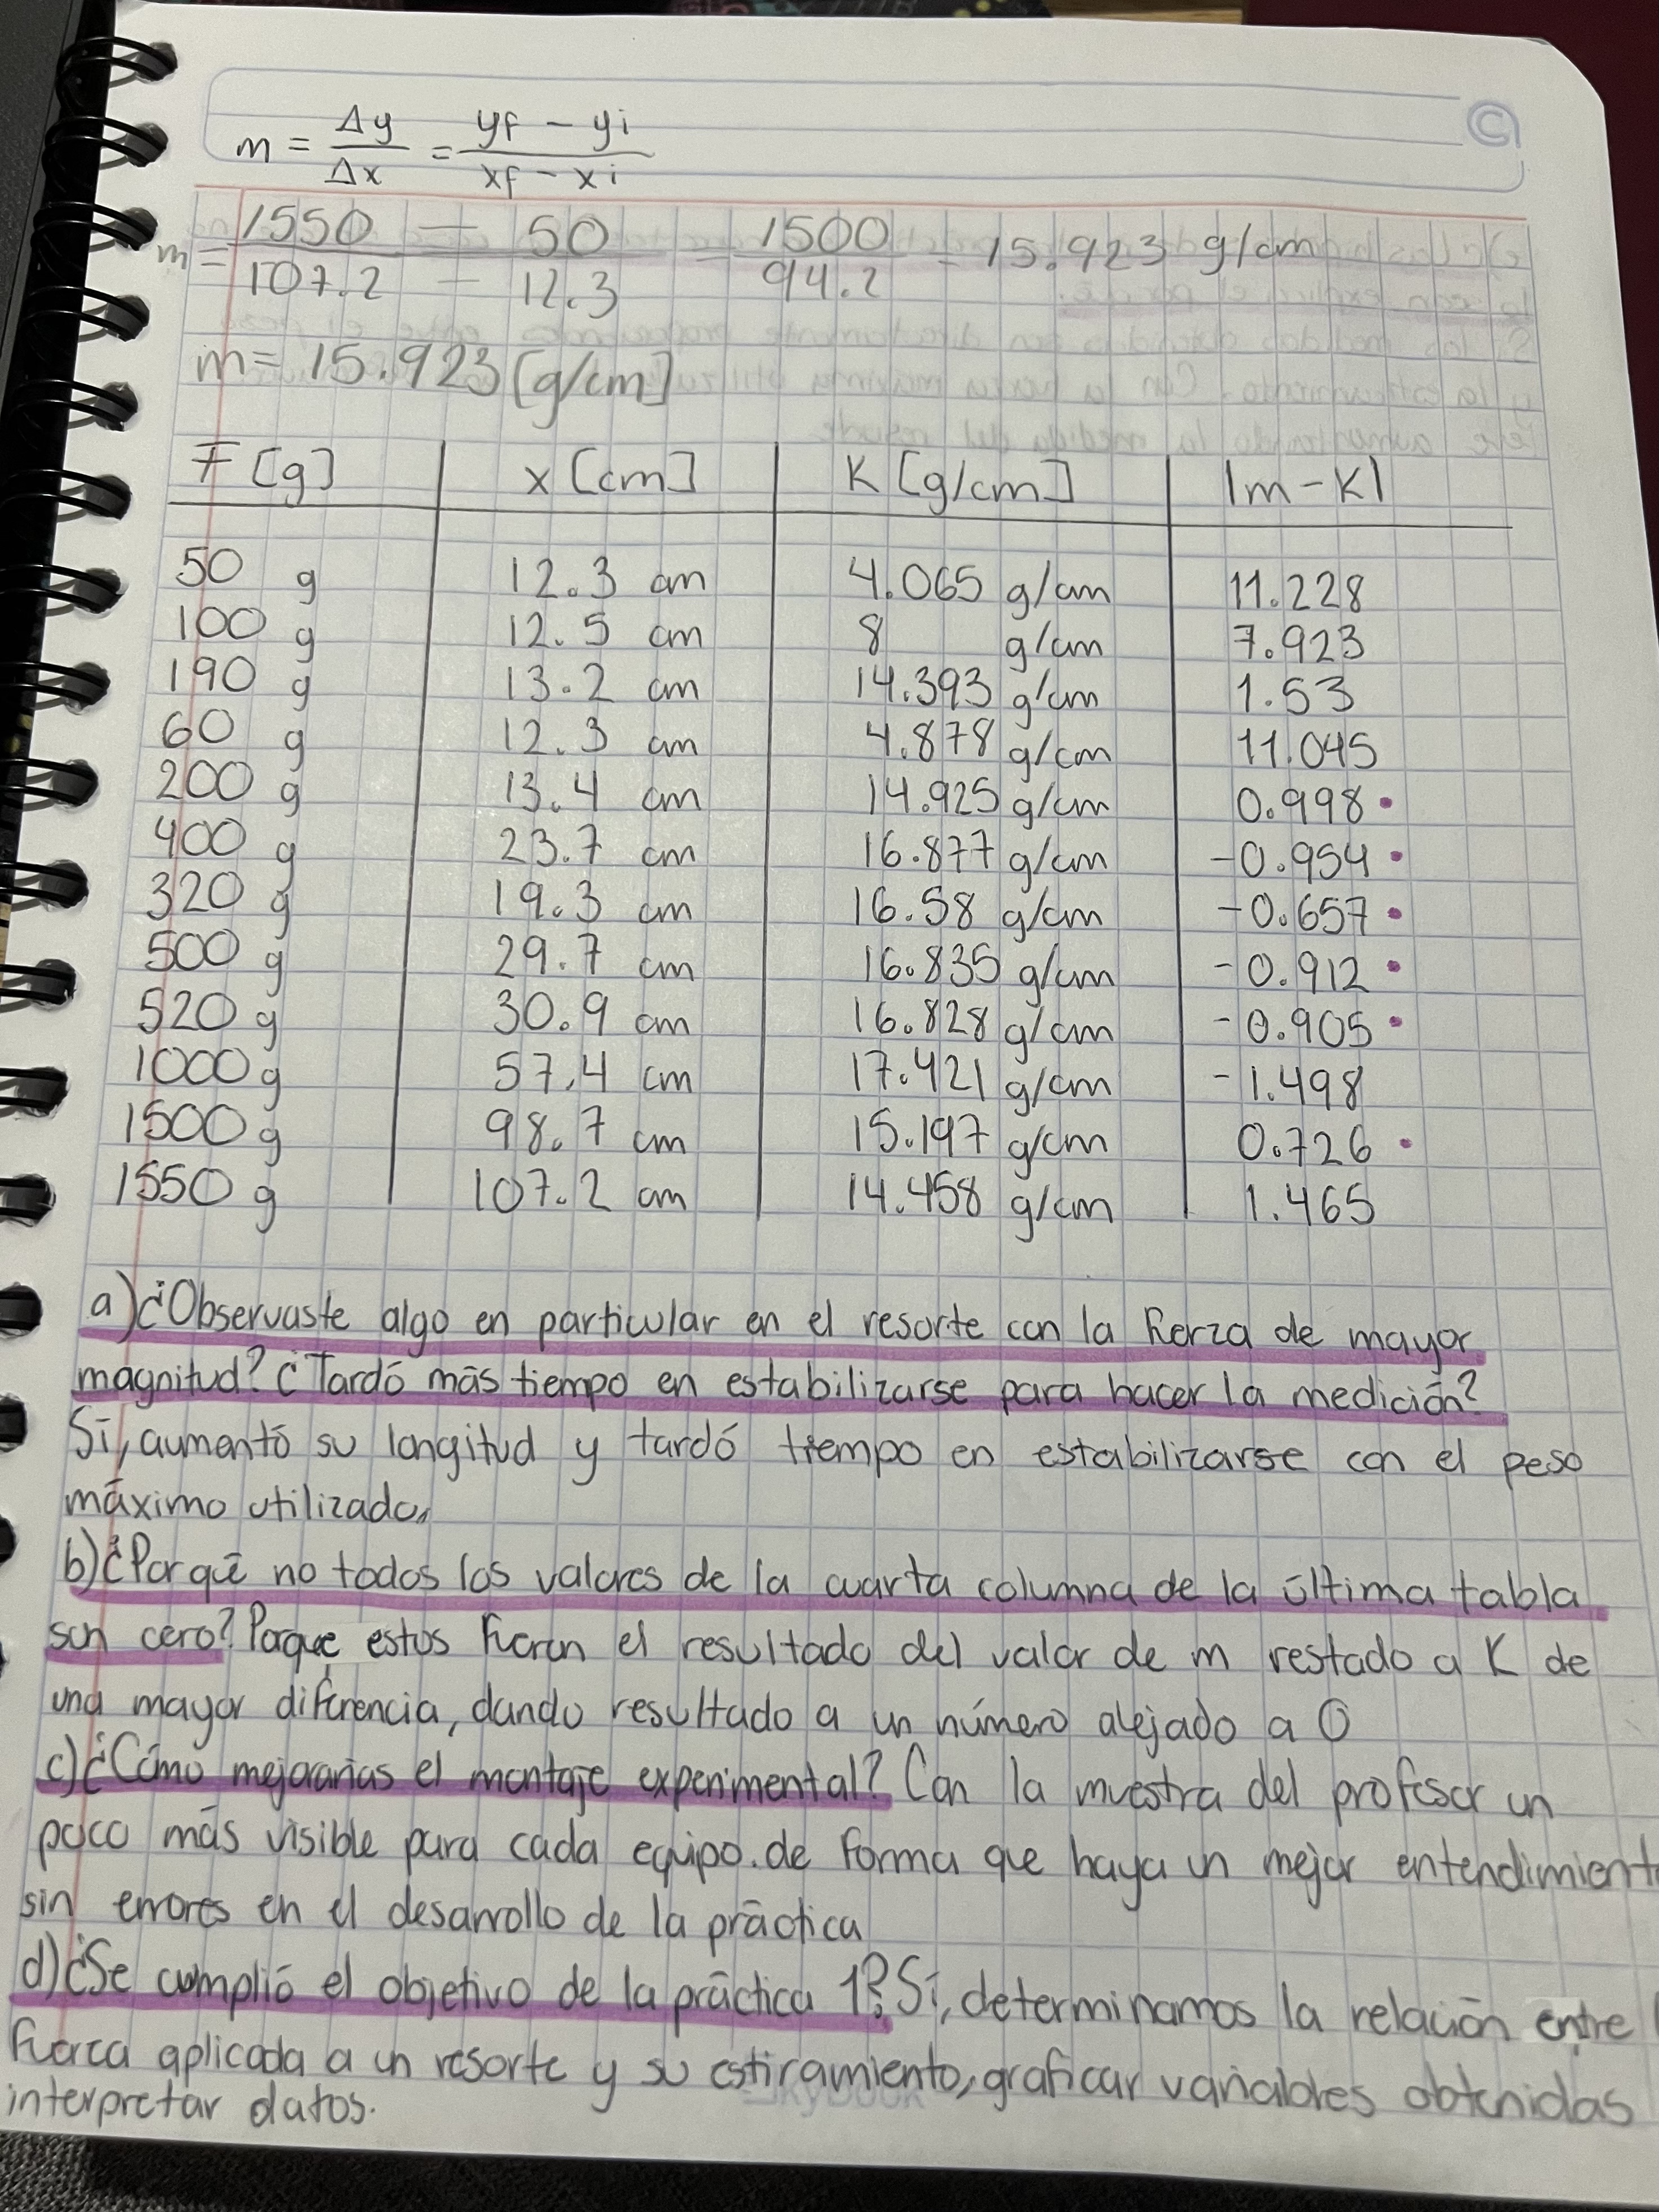 m = Δy/Δx = yf - yi / xf - xi
m = 1550 - 50 / 107.2 - 12.3 = 1500 / 94.2 = 15.923 g/cm
m = 15.923 [g/cm]
F [g] x [cm] K [g/cm] |m - K|
50 g 12.3 cm 4.065 g/cm 11.228
100 g 12.5 cm 8 g/cm 7.923
190 g 13.2 cm 14.393 g/cm 1.53
60 g 12.3 cm 4.878 g/cm 11.045
200 g 13.4 cm 14.925 g/cm 0.998 •
400 g 23.7 cm 16.877 g/cm -0.954 •
320 g 19.3 cm 16.58 g/cm -0.657 •
500 g 29.7 cm 16.835 g/cm -0.912 •
520 g 30.9 cm 16.828 g/cm -0.905 •
1000 g 57.4 cm 17.421 g/cm -1.498
1500 g 98.7 cm 15.197 g/cm 0.726 •
1550 g 107.2 cm 14.458 g/cm 1.465
a) ¿Observaste algo en particular en el resorte con la fuerza de mayor
magnitud? ¿Tardó más tiempo en estabilizarse para hacer la medición?
Sí, aumentó su longitud y tardó tiempo en estabilizarse con el peso
máximo utilizado.
b) ¿Por qué no todos los valores de la cuarta columna de la última tabla
son cero? Porque estos fueron el resultado del valor de m restado a K de
una mayor diferencia, dando resultado a un número alejado a 0
c) ¿Cómo mejorarías el montaje experimental? Con la muestra del profesor un
poco más visible para cada equipo. de forma que haya un mejor entendimiento
sin errores en el desarrollo de la práctica
d) ¿Se cumplió el objetivo de la práctica 1? Sí, determinamos la relación entre
fuerza aplicada a un resorte y su estiramiento, graficar variables obtenidas
interpretar datos.